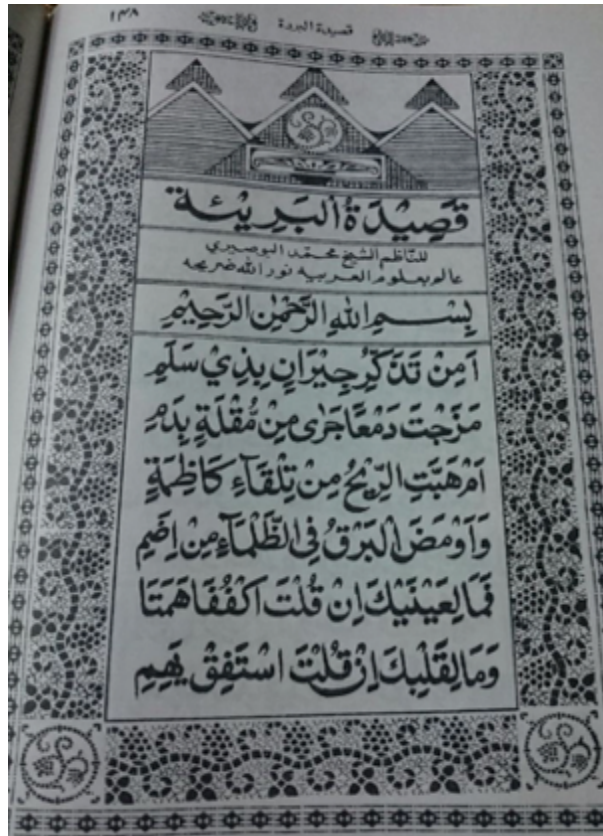 ١٤٨
قصيدة البردة
قَصِيْدَةُ الْبَرِيْئَة
للناظم الشيخ محمد البوصيري
عالم بعلوم العربيه نور الله ضريحه
بِسْمِ اللهِ الرَّحْمٰنِ الرَّحِيْمِ
اَمِنْ تَذَكُّرِ جِيْرَانٍ بِذِيْ سَلَمِ
مَزَجْتَ دَمْعًا جَرٰى مِنْ مُّقْلَةٍ بِدَمِ
اَمْ هَبَّتِ الرِّيْحُ مِنْ تِلْقَآءِ كَاظِمَةٍ
وَاَوْمَضَ الْبَرْقُ فِى الظَّلْمَآءِ مِنْ اِضَمِ
فَمَا لِعَيْنَيْكَ اِنْ قُلْتَ اكْفُفَا هَمَتَا
وَمَا لِقَلْبِكَ اِنْ قُلْتَ اسْتَفِقْ يَهِمِ